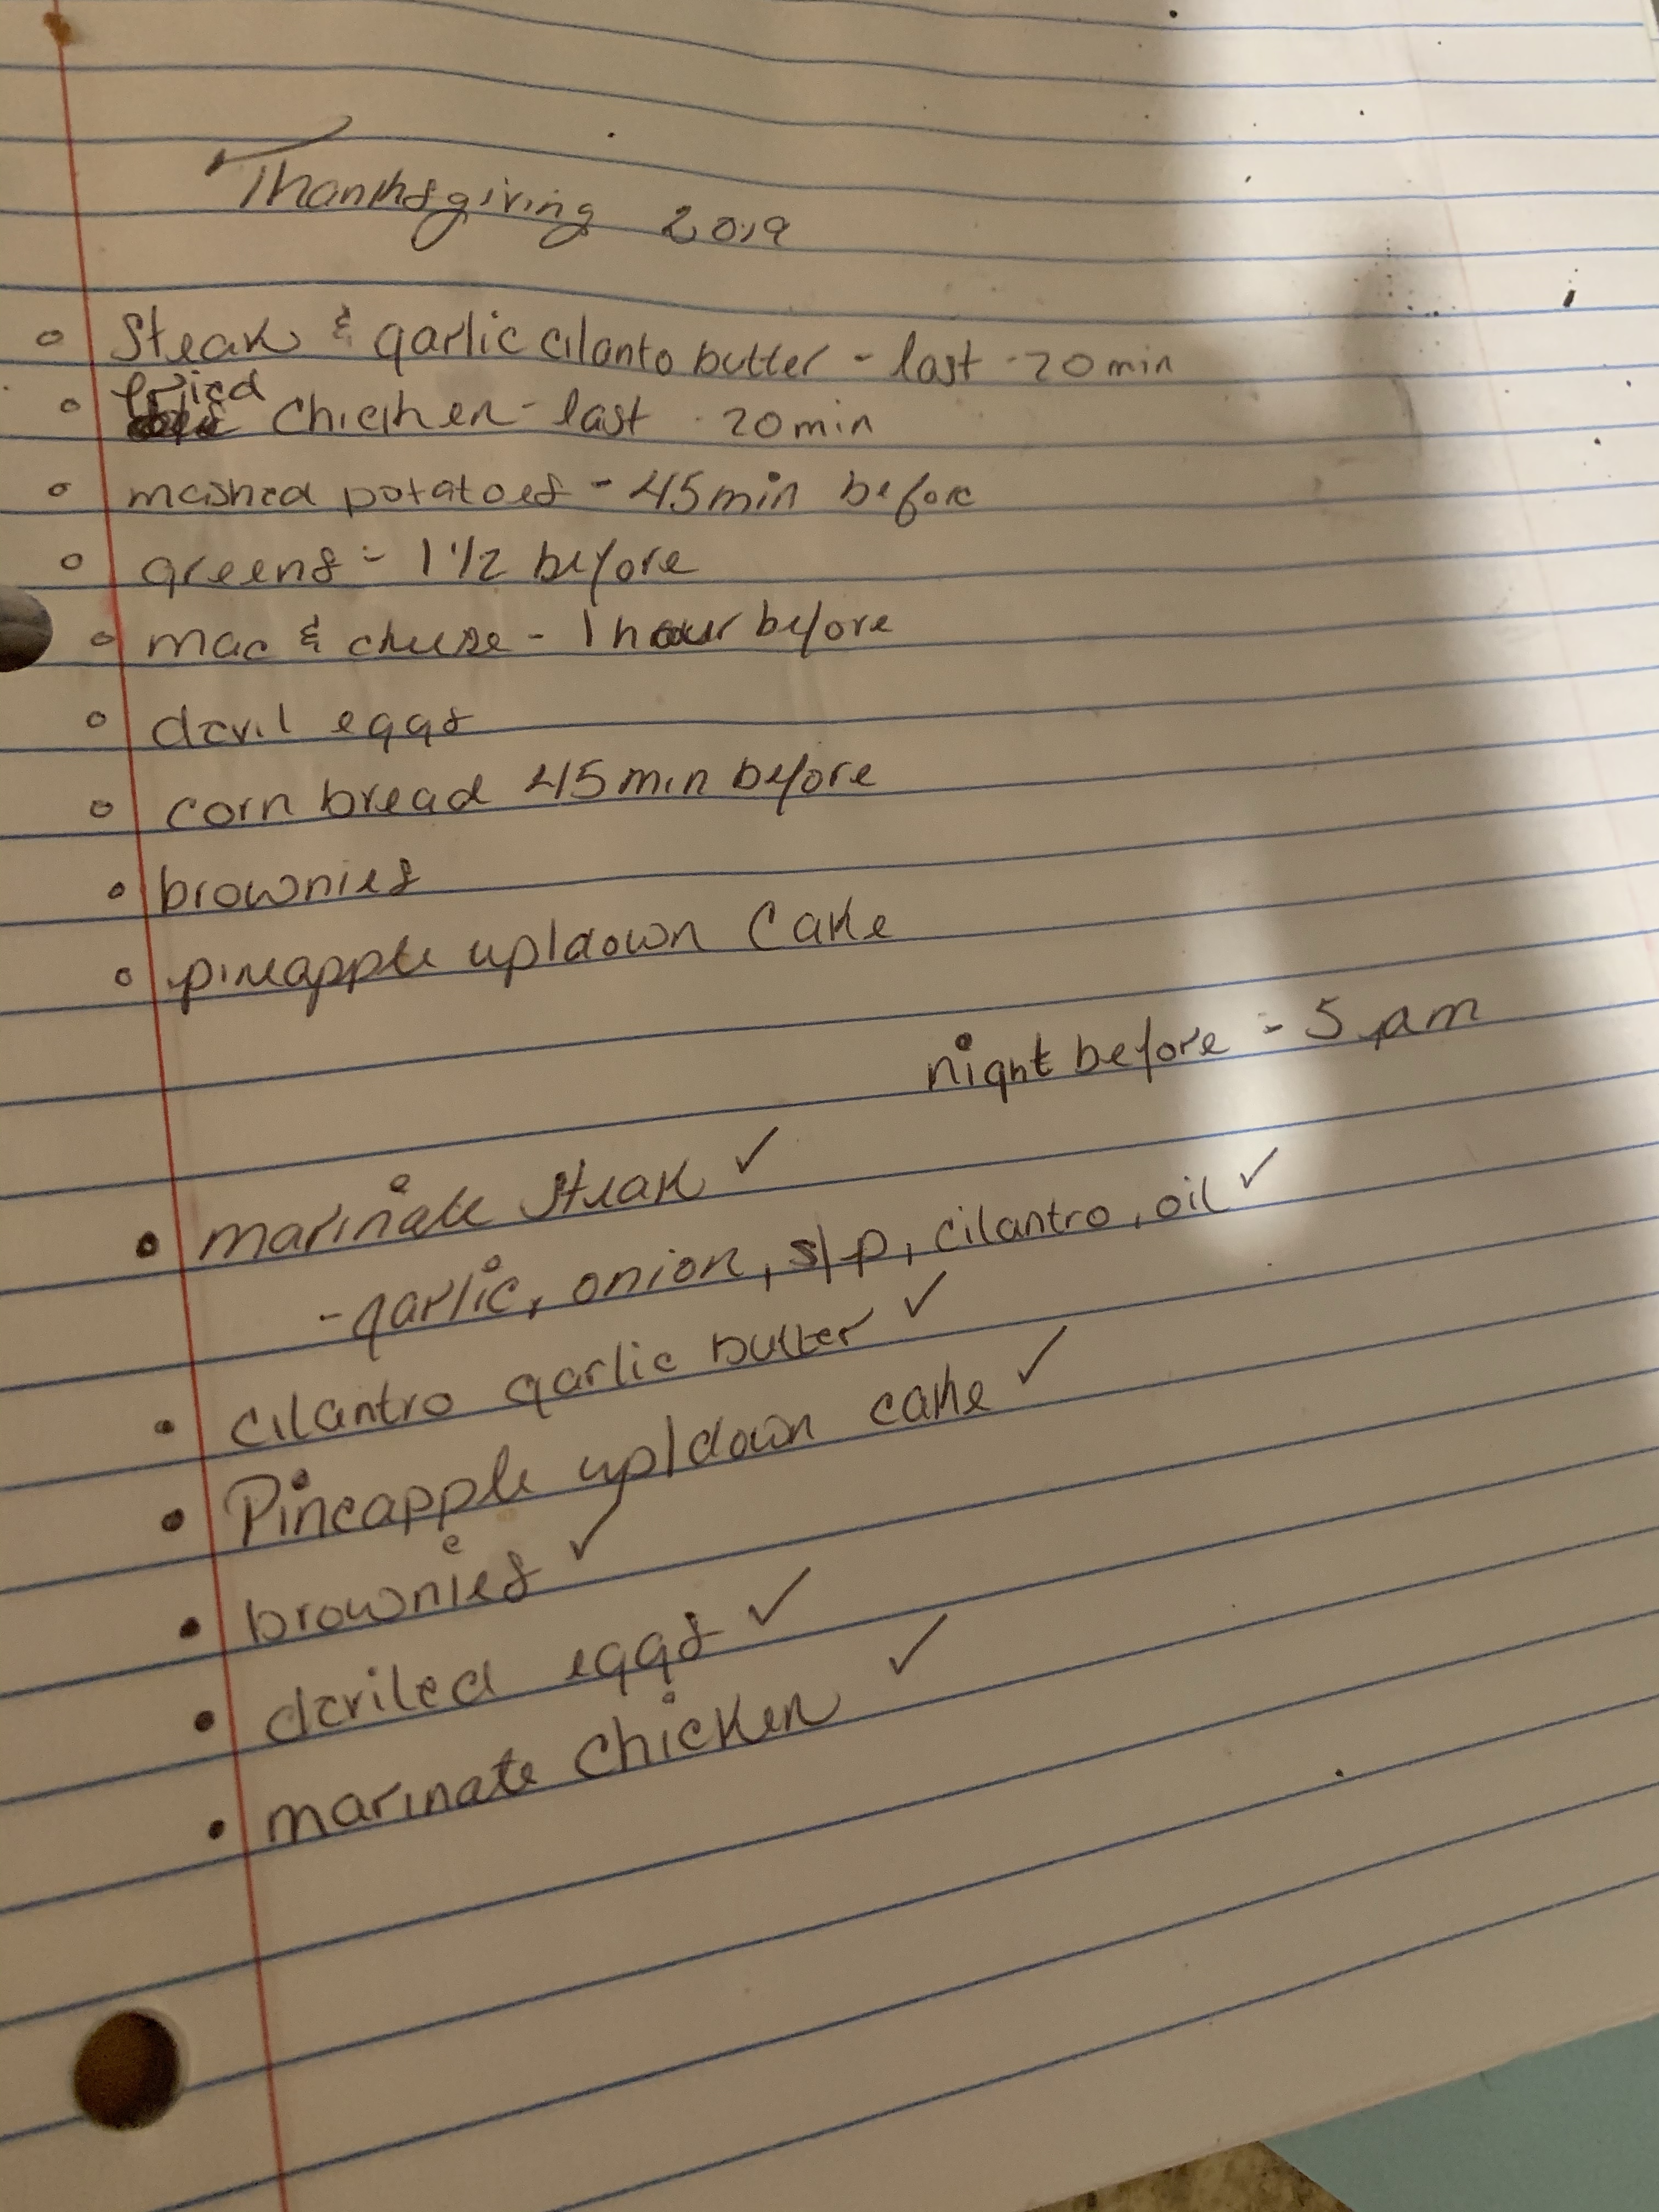 Thanksgiving 2019
Steak & garlic cilanto butter - last 20 min
fried
Chicken - last 20 min
mashed potatoes - 45 min before
greens - 1 1/2 before
mac & cheese - 1 hour before
devil eggs
corn bread 45 min before
brownies
pineapple up/down Cake
night before - 5 am
marinate steak ✓
- garlic, onion, s/p, cilantro, oil ✓
cilantro garlic butter ✓
Pineapple up/down cake ✓
brownies ✓
deviled eggs ✓
marinate chicken ✓